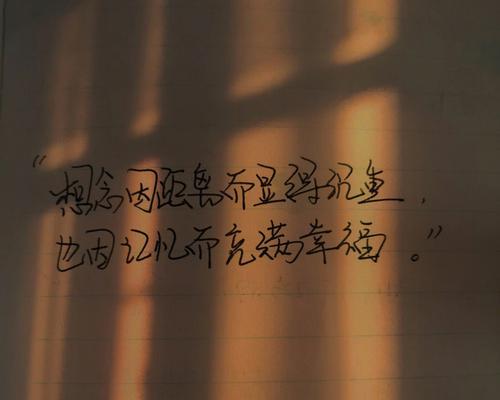 “想念因距离而显得沉重,
也因记忆而充满幸福。”